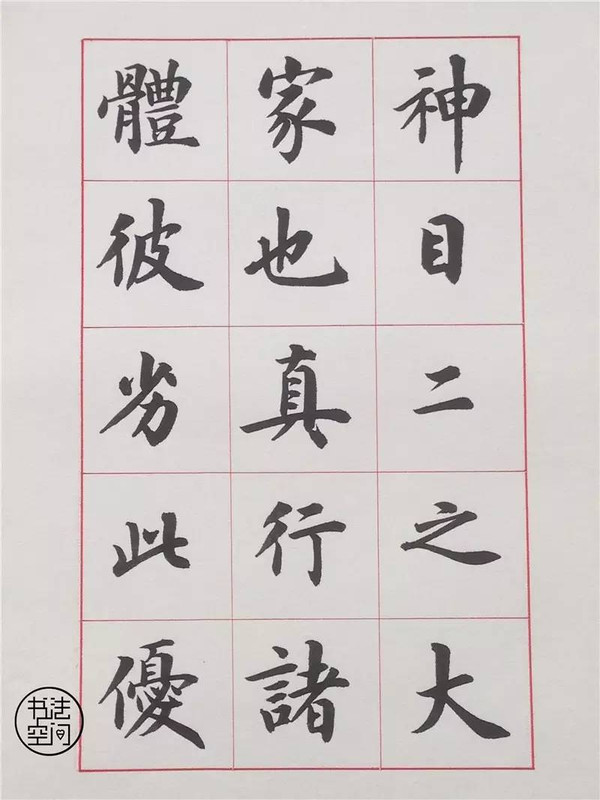 神目二之大
家也真行諸
體彼劣此優
书法
空间